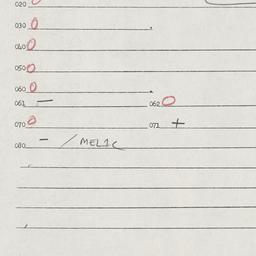 020 0
030 0
040 0
050 0
060 0
061 — 062 0
070 0 071 +
080 - / MELIC